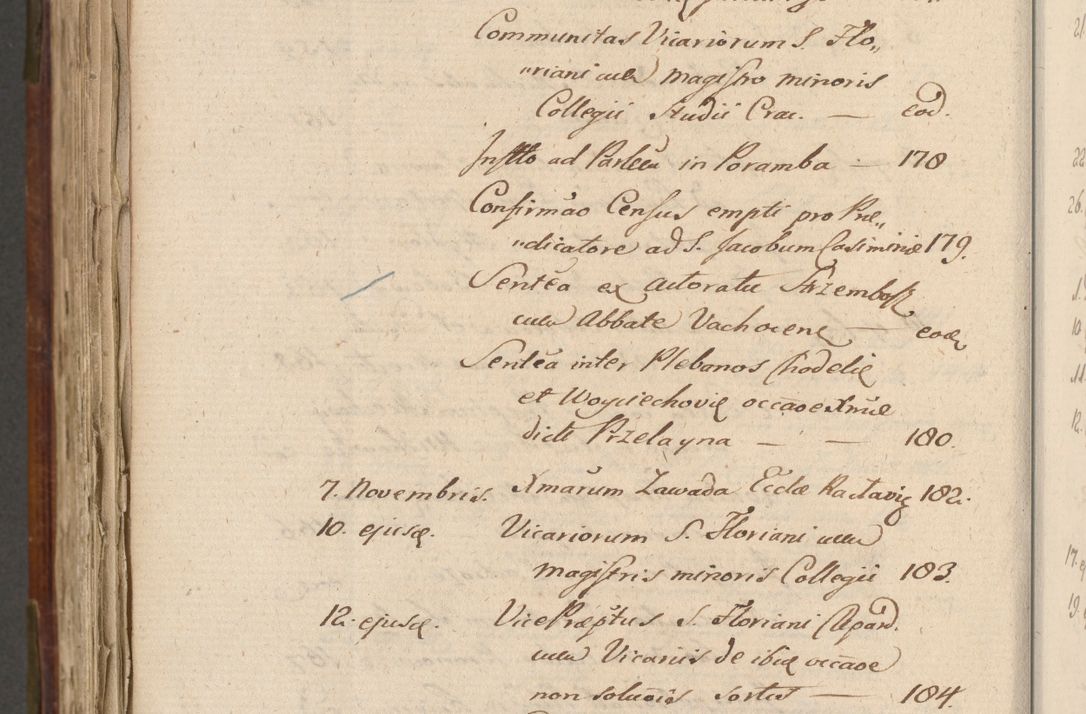 Communitas Vicariorum S. Flo„
„riani cum Magistro minoris
Collegii Studii Crac. — eod.
Instto ad Parlem in Poramba — 178
Confirmão Census empti pro Præ„
„dicatore ad S. Jacobum Casimiriæ 179.
Sentẽa ex Autoratu Strzembosz
cum Abbate Vachocenẽ — eodẽ
Sentẽa inter Plebanos Chodelię
et Woyciechovię occãoe Xmæ
dictæ Przelayna — — 180.
7. Novembris. Xmarum Zawada Ecclæ Raclavię 182.
10. ejusdẽ. Vicariorum S. Floriani cum
Magistris minoris Collegii 183.
12. ejusdẽ. Vice Præptus S. Floriani Capard.
cum Vicariis de ibidẽ occãoe
non solucõis sortis — 184.